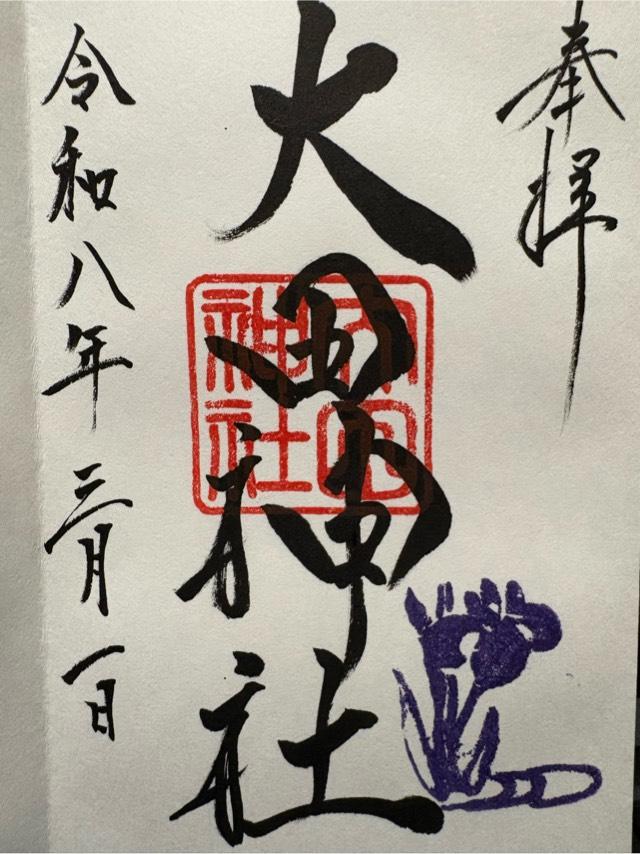 奉拝
大田神社
大田神社
令和八年三月一日